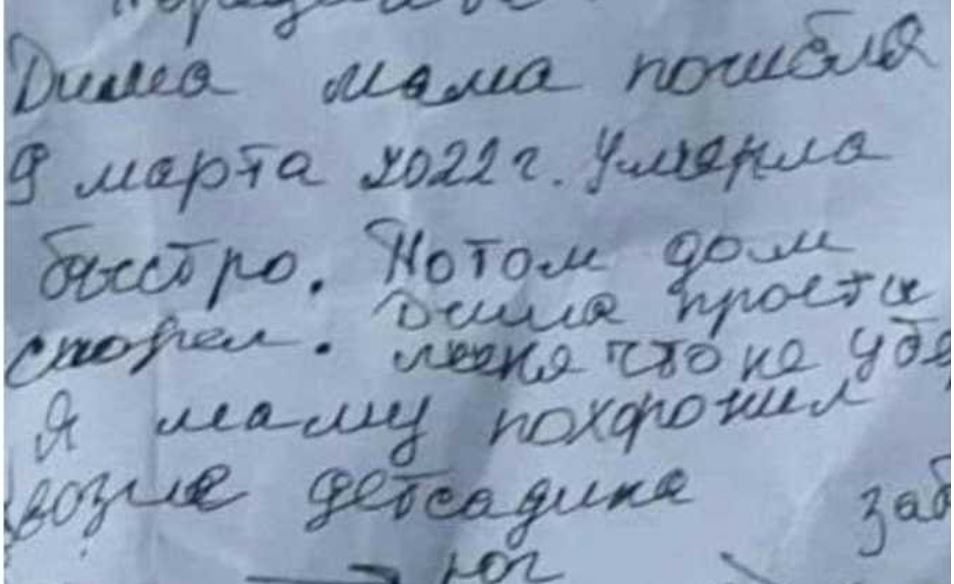 Дима мама погибла
9 марта 2022 г. Умерла
быстро. Потом дом
сгорел. Дима прости
меня что не убе
Я маму похоронил
возле детсадика заб
юг